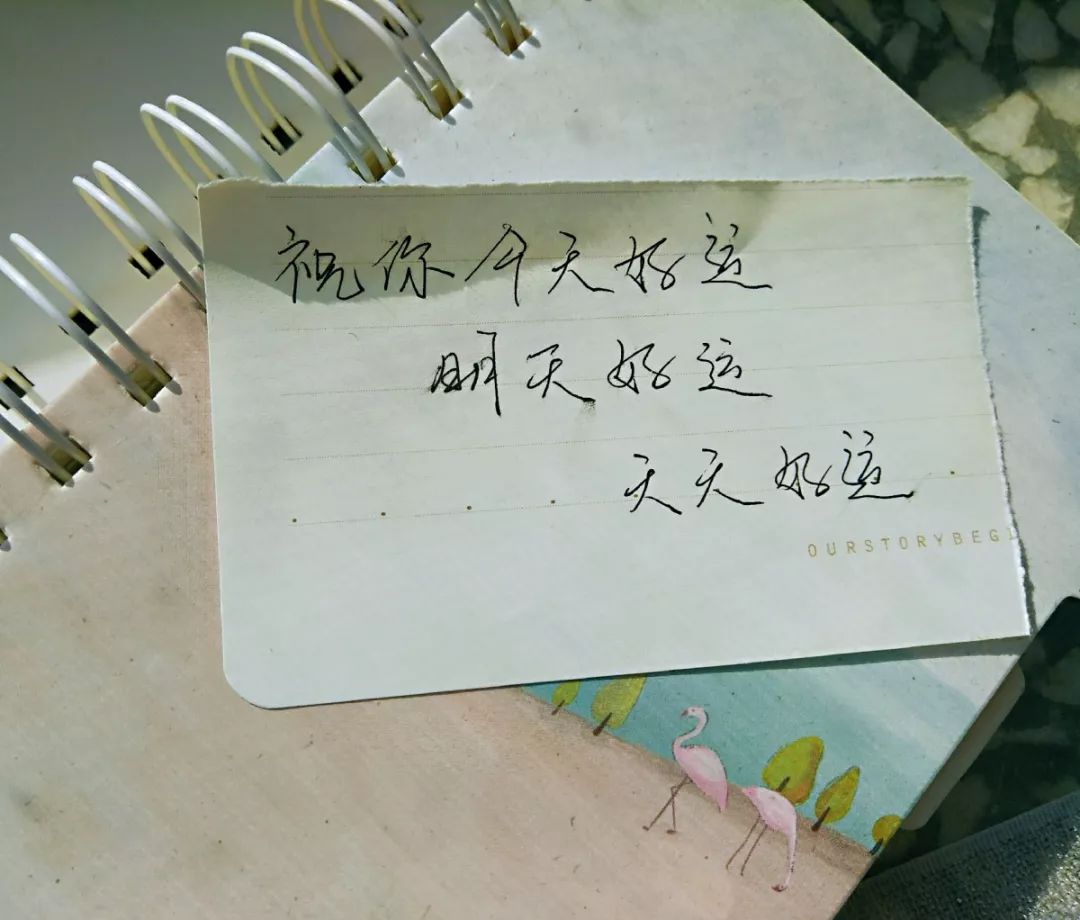 祝你今天好运
明天好运
天天好运
OURSTORYBEGI